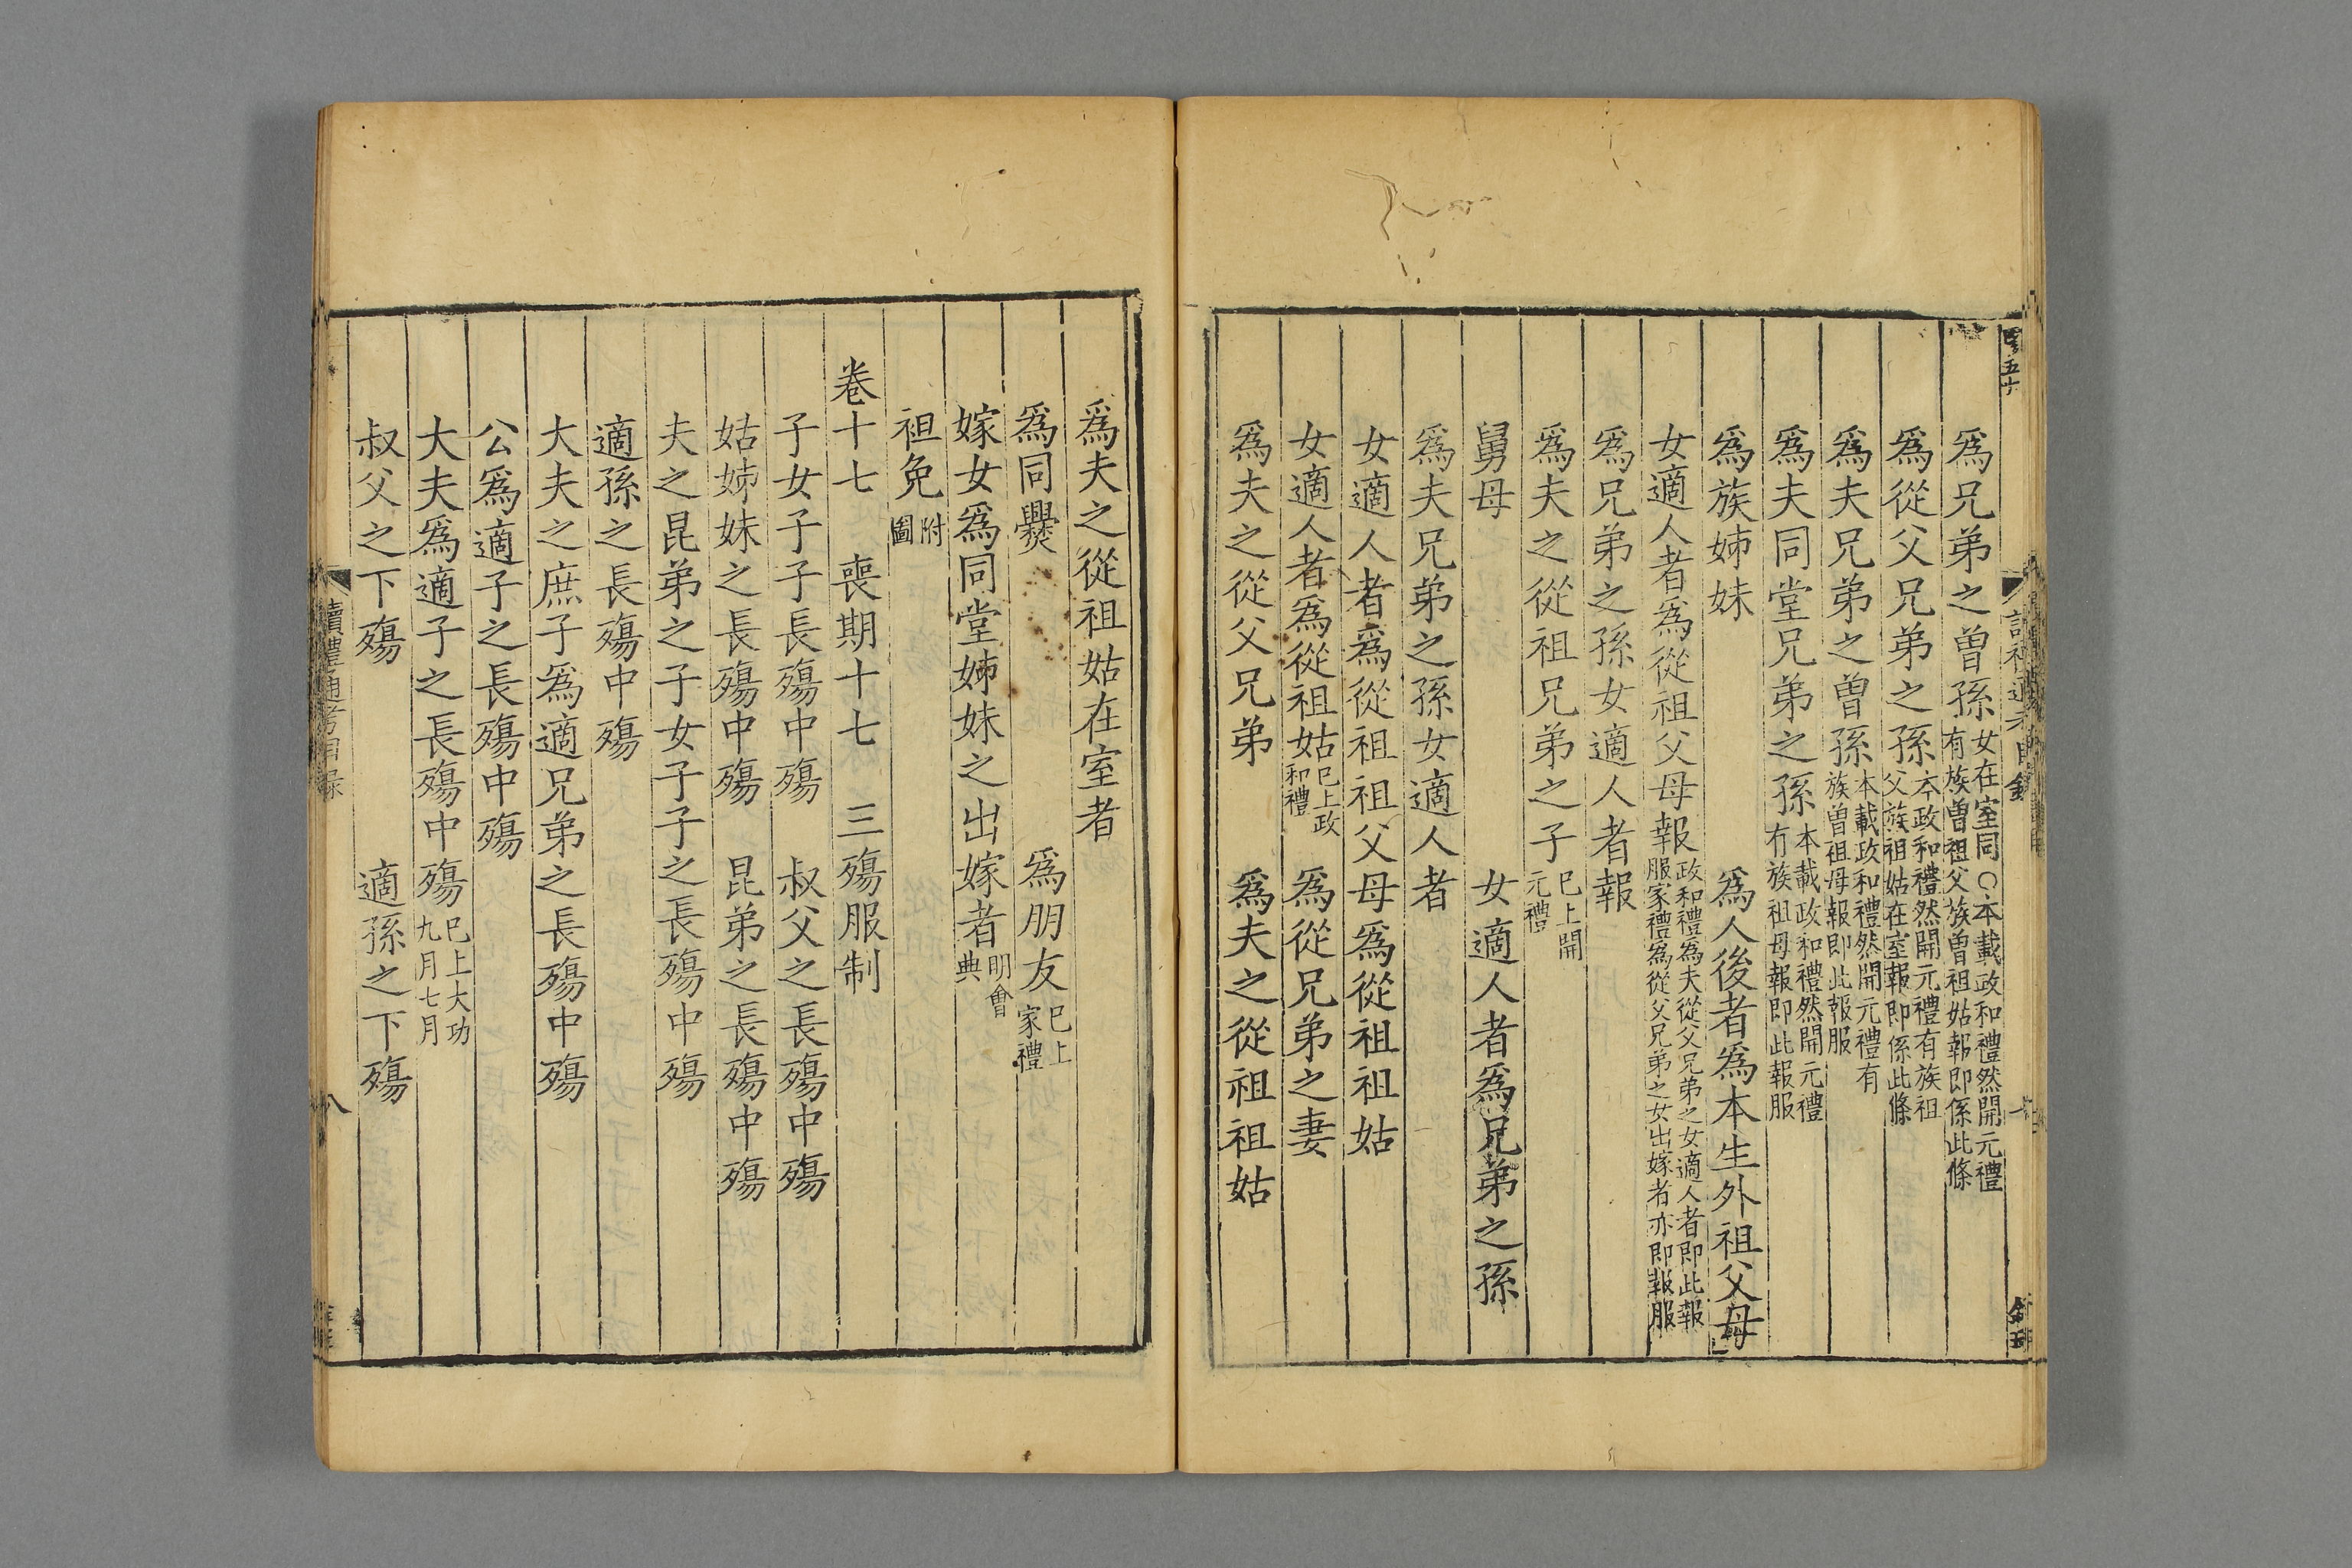 為兄弟之曾孫女在室同○本載政和禮然開元禮有族曾祖父族曾祖姑報即係此條
為從父兄弟之孫本政和禮然開元禮有族祖父族祖姑在室報即係此條
為夫兄弟之曾孫本載政和禮然開元禮有族曾祖母報即此報服
為夫同堂兄弟之孫本載政和禮然開元禮有族祖母報即此報服
為族姊妹　為人後者為本生外祖父母
女適人者為從祖父母報政和禮為夫從父兄弟之女適人者即此報服家禮為從父兄弟之女出嫁者亦即報服
為兄弟之孫女適人者報
為夫之從祖兄弟之子已上開元禮
舅母　女適人者為兄弟之孫
為夫兄弟之孫女適人者
女適人者為從祖祖父母為從祖祖姑
女適人者為從祖姑已上政和禮　為從兄弟之妻
為夫之從父兄弟　為夫之從祖祖姑
為夫之從祖姑在室者
為同爨　為朋友已上家禮
嫁女為同堂姊妹之出嫁者明會典
袒免附圖
卷十七　喪期十七　三殤服制
子女子子長殤中殤　叔父之長殤中殤
姑姊妹之長殤中殤　昆弟之長殤中殤
夫之昆弟之子女子子之長殤中殤
適孫之長殤中殤
大夫之庶子為適兄弟之長殤中殤
公為適子之長殤中殤
大夫為適子之長殤中殤已上大功九月七月
叔父之下殤　適孫之下殤
讀禮通考目錄
八